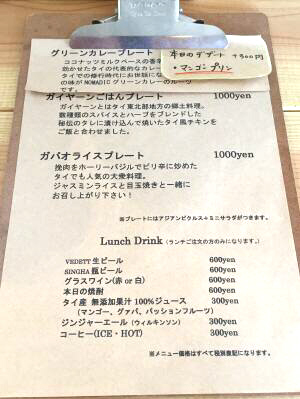 グリーンカレープレート
ココナッツミルクベースの
効かせたタイの代表的なカレー
タイでの修行時代にお世話にな
の味がNOMADICグリーンカレーのルーツ
本日のデザート +300円
・マンゴープリン
ガイヤーンごはんプレート 1000yen
ガイヤーンとはタイ東北部地方の郷土料理。
数種類のスパイスとハーブをブレンドした
秘伝のタレに漬け込んで焼いたタイ風チキンを
ご飯と合わせました。
ガパオライスプレート 1000yen
挽肉をホーリーバジルでピリ辛に炒めた
タイでも人気の大衆料理。
ジャスミンライスと目玉焼きと一緒に
お召し上がり下さい！
※プレートにはアジアンピクルス+ミニサラダがつきます。
Lunch Drink (ランチご注文の方のみになります。)
VEDETT 生ビール 600yen
SINGHA 瓶ビール 600yen
グラスワイン(赤 or 白) 600yen
本日の焼酎 600yen
タイ産 無添加果汁 100%ジュース 300yen
(マンゴー、グァバ、パッションフルーツ)
ジンジャーエール(ウィルキンソン) 300yen
コーヒー(ICE・HOT) 300yen
※メニュー価格はすべて税別表記になります。